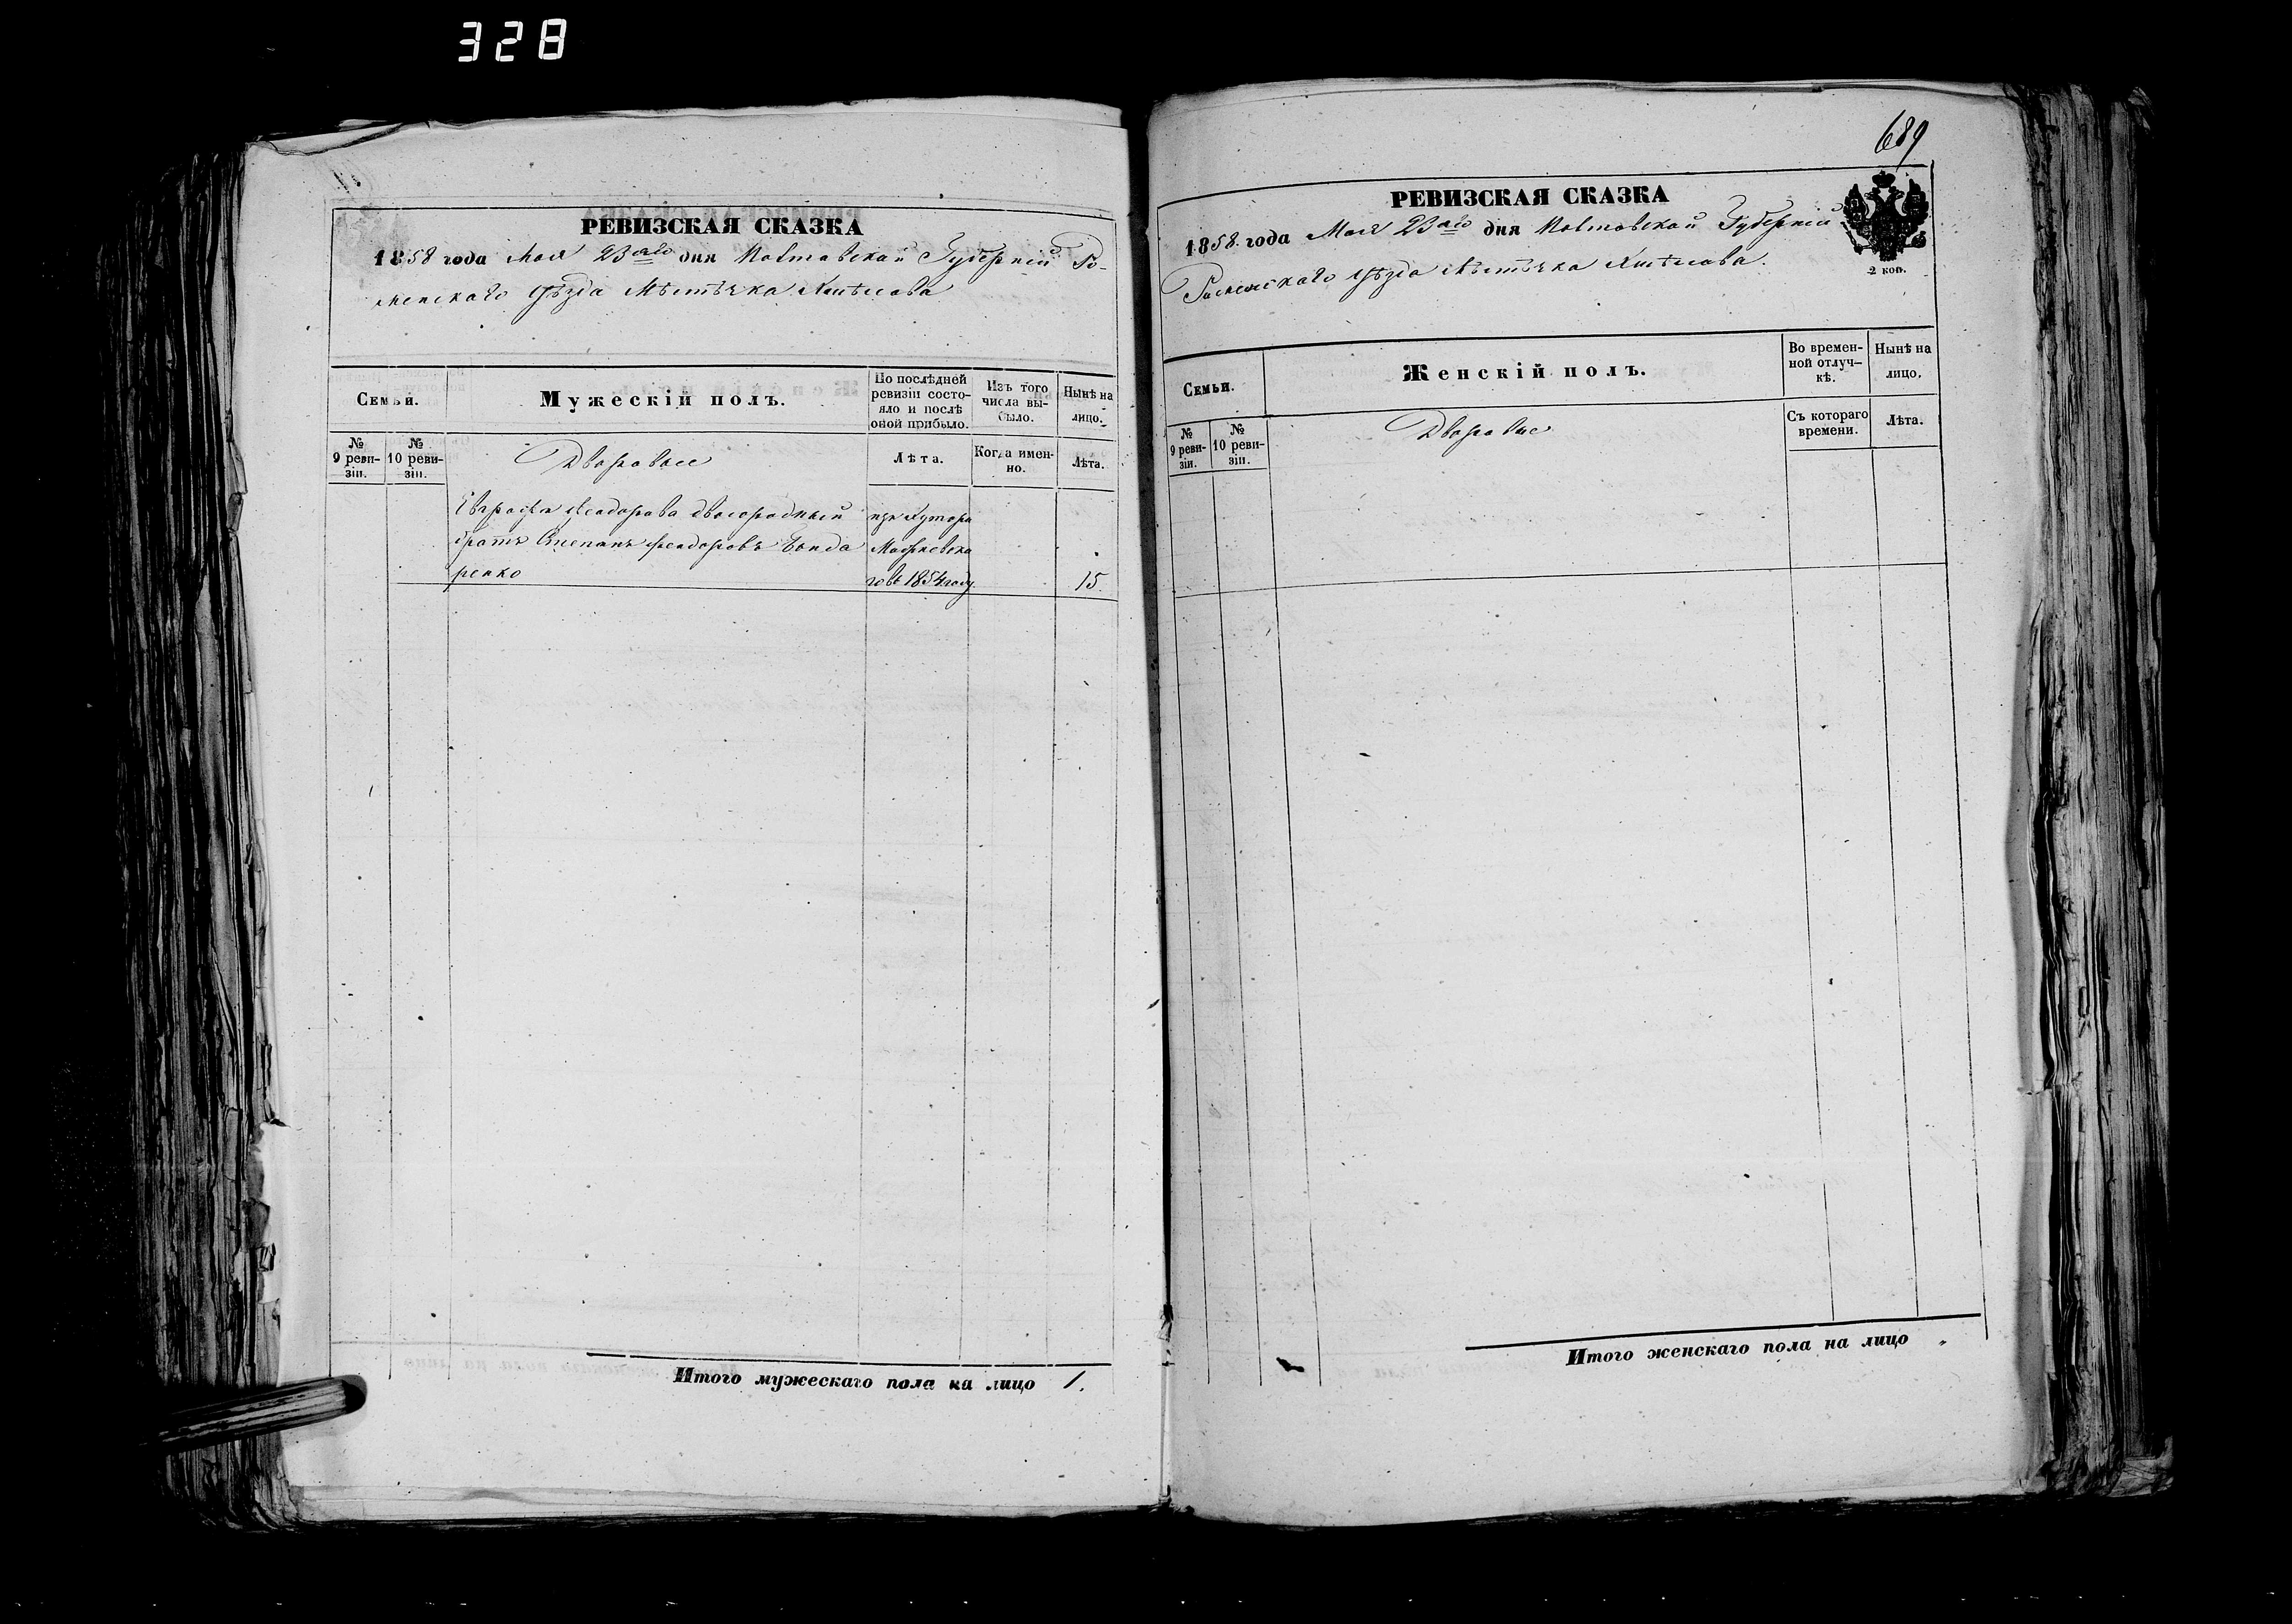 328
РЕВИЗСКАЯ СКАЗКА
1858 года Мая 23аго дня Полтавской Губерніи Ро-
менскаго уѣзда Мѣстечка Хмѣлова
Семьи.
Мужескій полъ.
По послѣдней ревизіи состо-
яло и послѣ оной прибыло.
Изъ того числа вы-
было.
Нынѣ на лицо.
№ 9 реви-
зіи.
№ 10 реви-
зіи.
Дворовые
Лѣта.
Когда имен-
но.
Лѣта.
Евграфа Феодорова двоюродный
братъ Степанъ Феодоровъ Бонда
ренко
изъ хутора
го въ 1854 году.
15.
Итого мужескаго пола на лицо 1.
689
РЕВИЗСКАЯ СКАЗКА
1858 года Мая 23аго дня Полтавской Губерніи
Роменскаго уѣзда Мѣстечка Хмѣлова.
2 коп.
Семьи.
Женскій полъ.
Во времен-
ной отлуч-
кѣ.
Нынѣ на
лицо.
№ 9 реви-
зіи.
№ 10 реви-
зіи.
Дворовые
Съ котораго
времени.
Лѣта.
Итого женскаго пола на лицо „